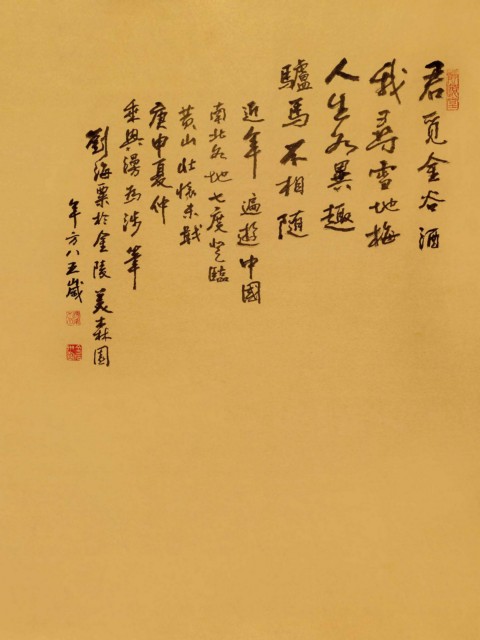 君覓金谷酒
我尋雪地梅
人生各異趣
驢馬不相隨
近年遍遊中國
南北各地七度登臨
黃山壯懷未戢
庚申夏仲
乘興漫為涉筆
劉海粟於金陵美森園
年方八五歲